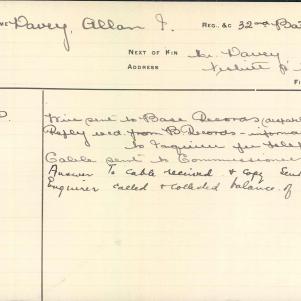 ME Davey, Allan J. REG. &C 32nd Bat
NEXT OF KIN Mr Davey
ADDRESS
FI
D. Wire sent to Base Records
Reply recd. from B. Records - informa
to Inquirer per
Cable sent to Commissioner
Answer to cable received & copy sen
Enquirer called & collected balance of